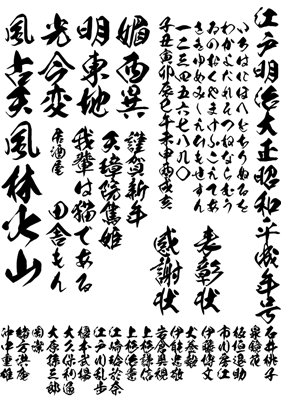 江戸明治大正昭和平成年号
いろはにほへとちりぬるを
わかよたれそつねならむう
ゐのおくやまけふこえてあ
さきゆめみしゑひもせすん
一二三四五六七八九〇
子丑寅卯辰巳午未申酉戌亥
表彰状
感謝状
謹賀新年
天璋院篤姫
我輩は猫である
居酒屋 田舎もん
媚西異
明東地
光今変
風古
風林火山
石井桃子
泉鏡花
板垣退助
市川房江
伊藤博文
犬養毅
伊能忠敬
岩倉具視
上杉謙信
上杉
江崎玲於奈
江戸川乱歩
榎本武揚
大久保利通
大原孫三郎
岡潔
緒方洪庵
沖中重雄